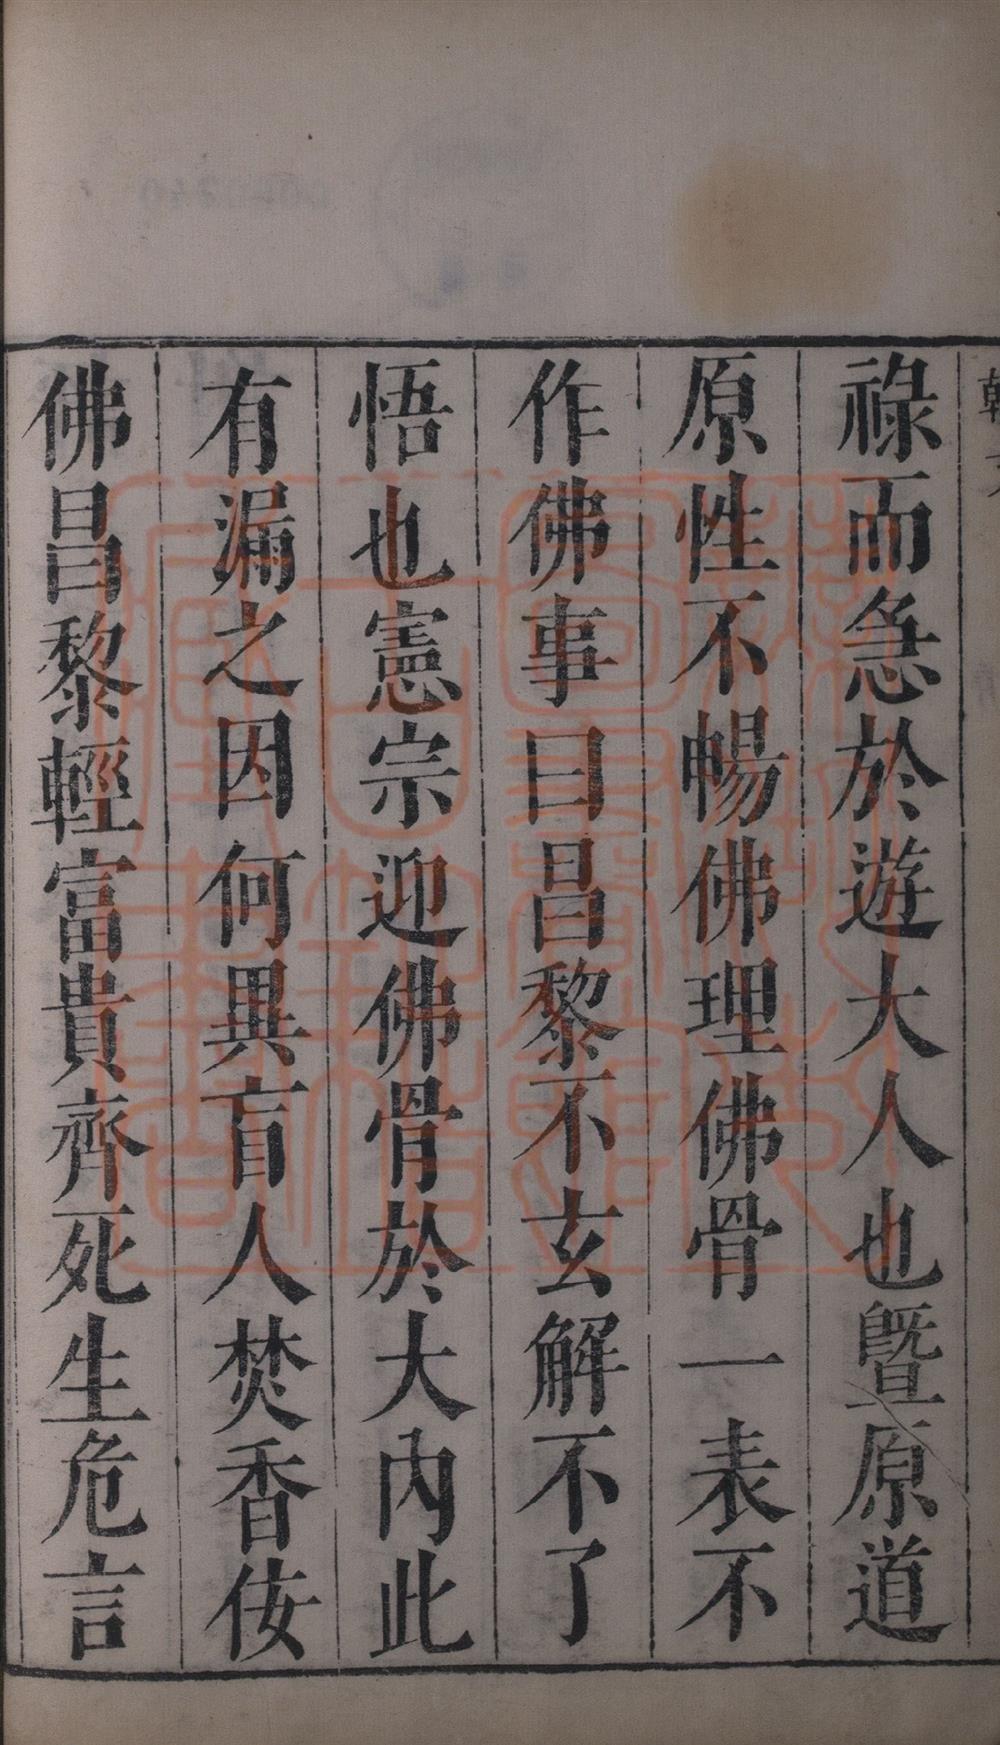 祿而急於遊大人也暨原道
原性不暢佛理佛骨一表不
作佛事曰昌黎不玄解不了
悟也憲宗迎佛骨於大內此
有漏之因何異盲人焚香侫
佛昌黎輕富貴齊死生危言